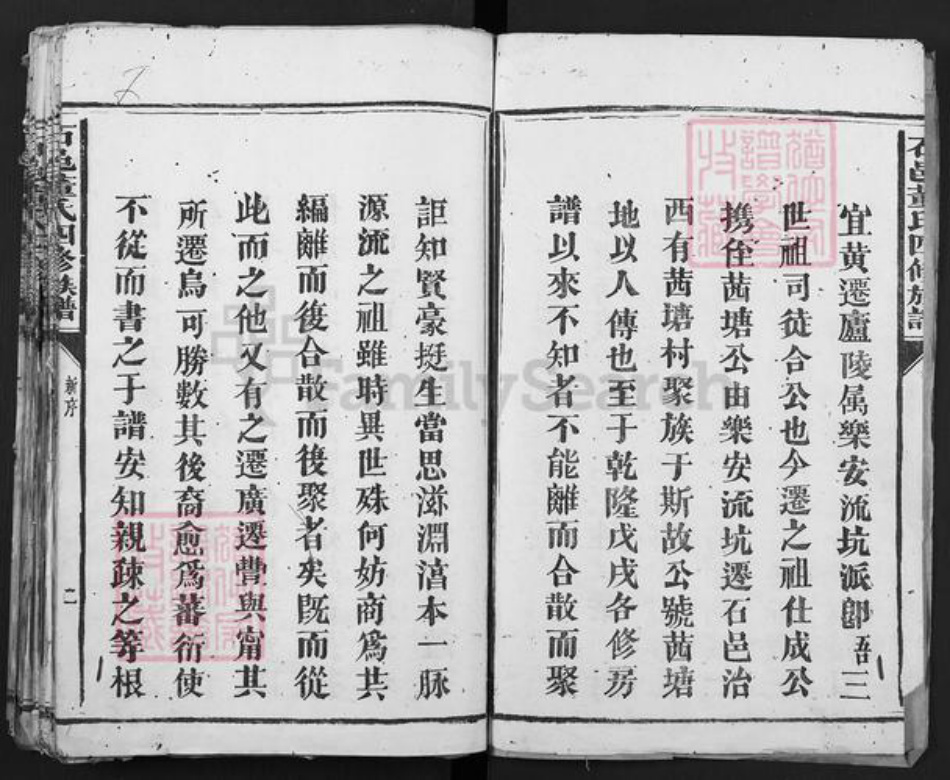 石邑董氏四修族譜
宜黃遷廬陵属樂安流坑派卽吾三
世祖司徒合公也今遷之祖仕成公
携侄茜塘公由樂安流坑遷石邑治
西有茜塘村聚族于斯故公號茜塘
地以人傳也至于乾隆戊戌各修房
譜以來不知者不能離而合散而聚
詎知賢豪挺生當思滋淵瀦本一脉
源流之祖雖時異世殊何妨商爲共
編離而後合散而後聚者矣既而從
此而之他又有之遷廣遷豐與甯其
所遷烏可勝數其後裔愈爲蕃衍使
不從而書之于譜安知親疎之等根
石邑董氏四修族譜
新序
二
FamilySearch